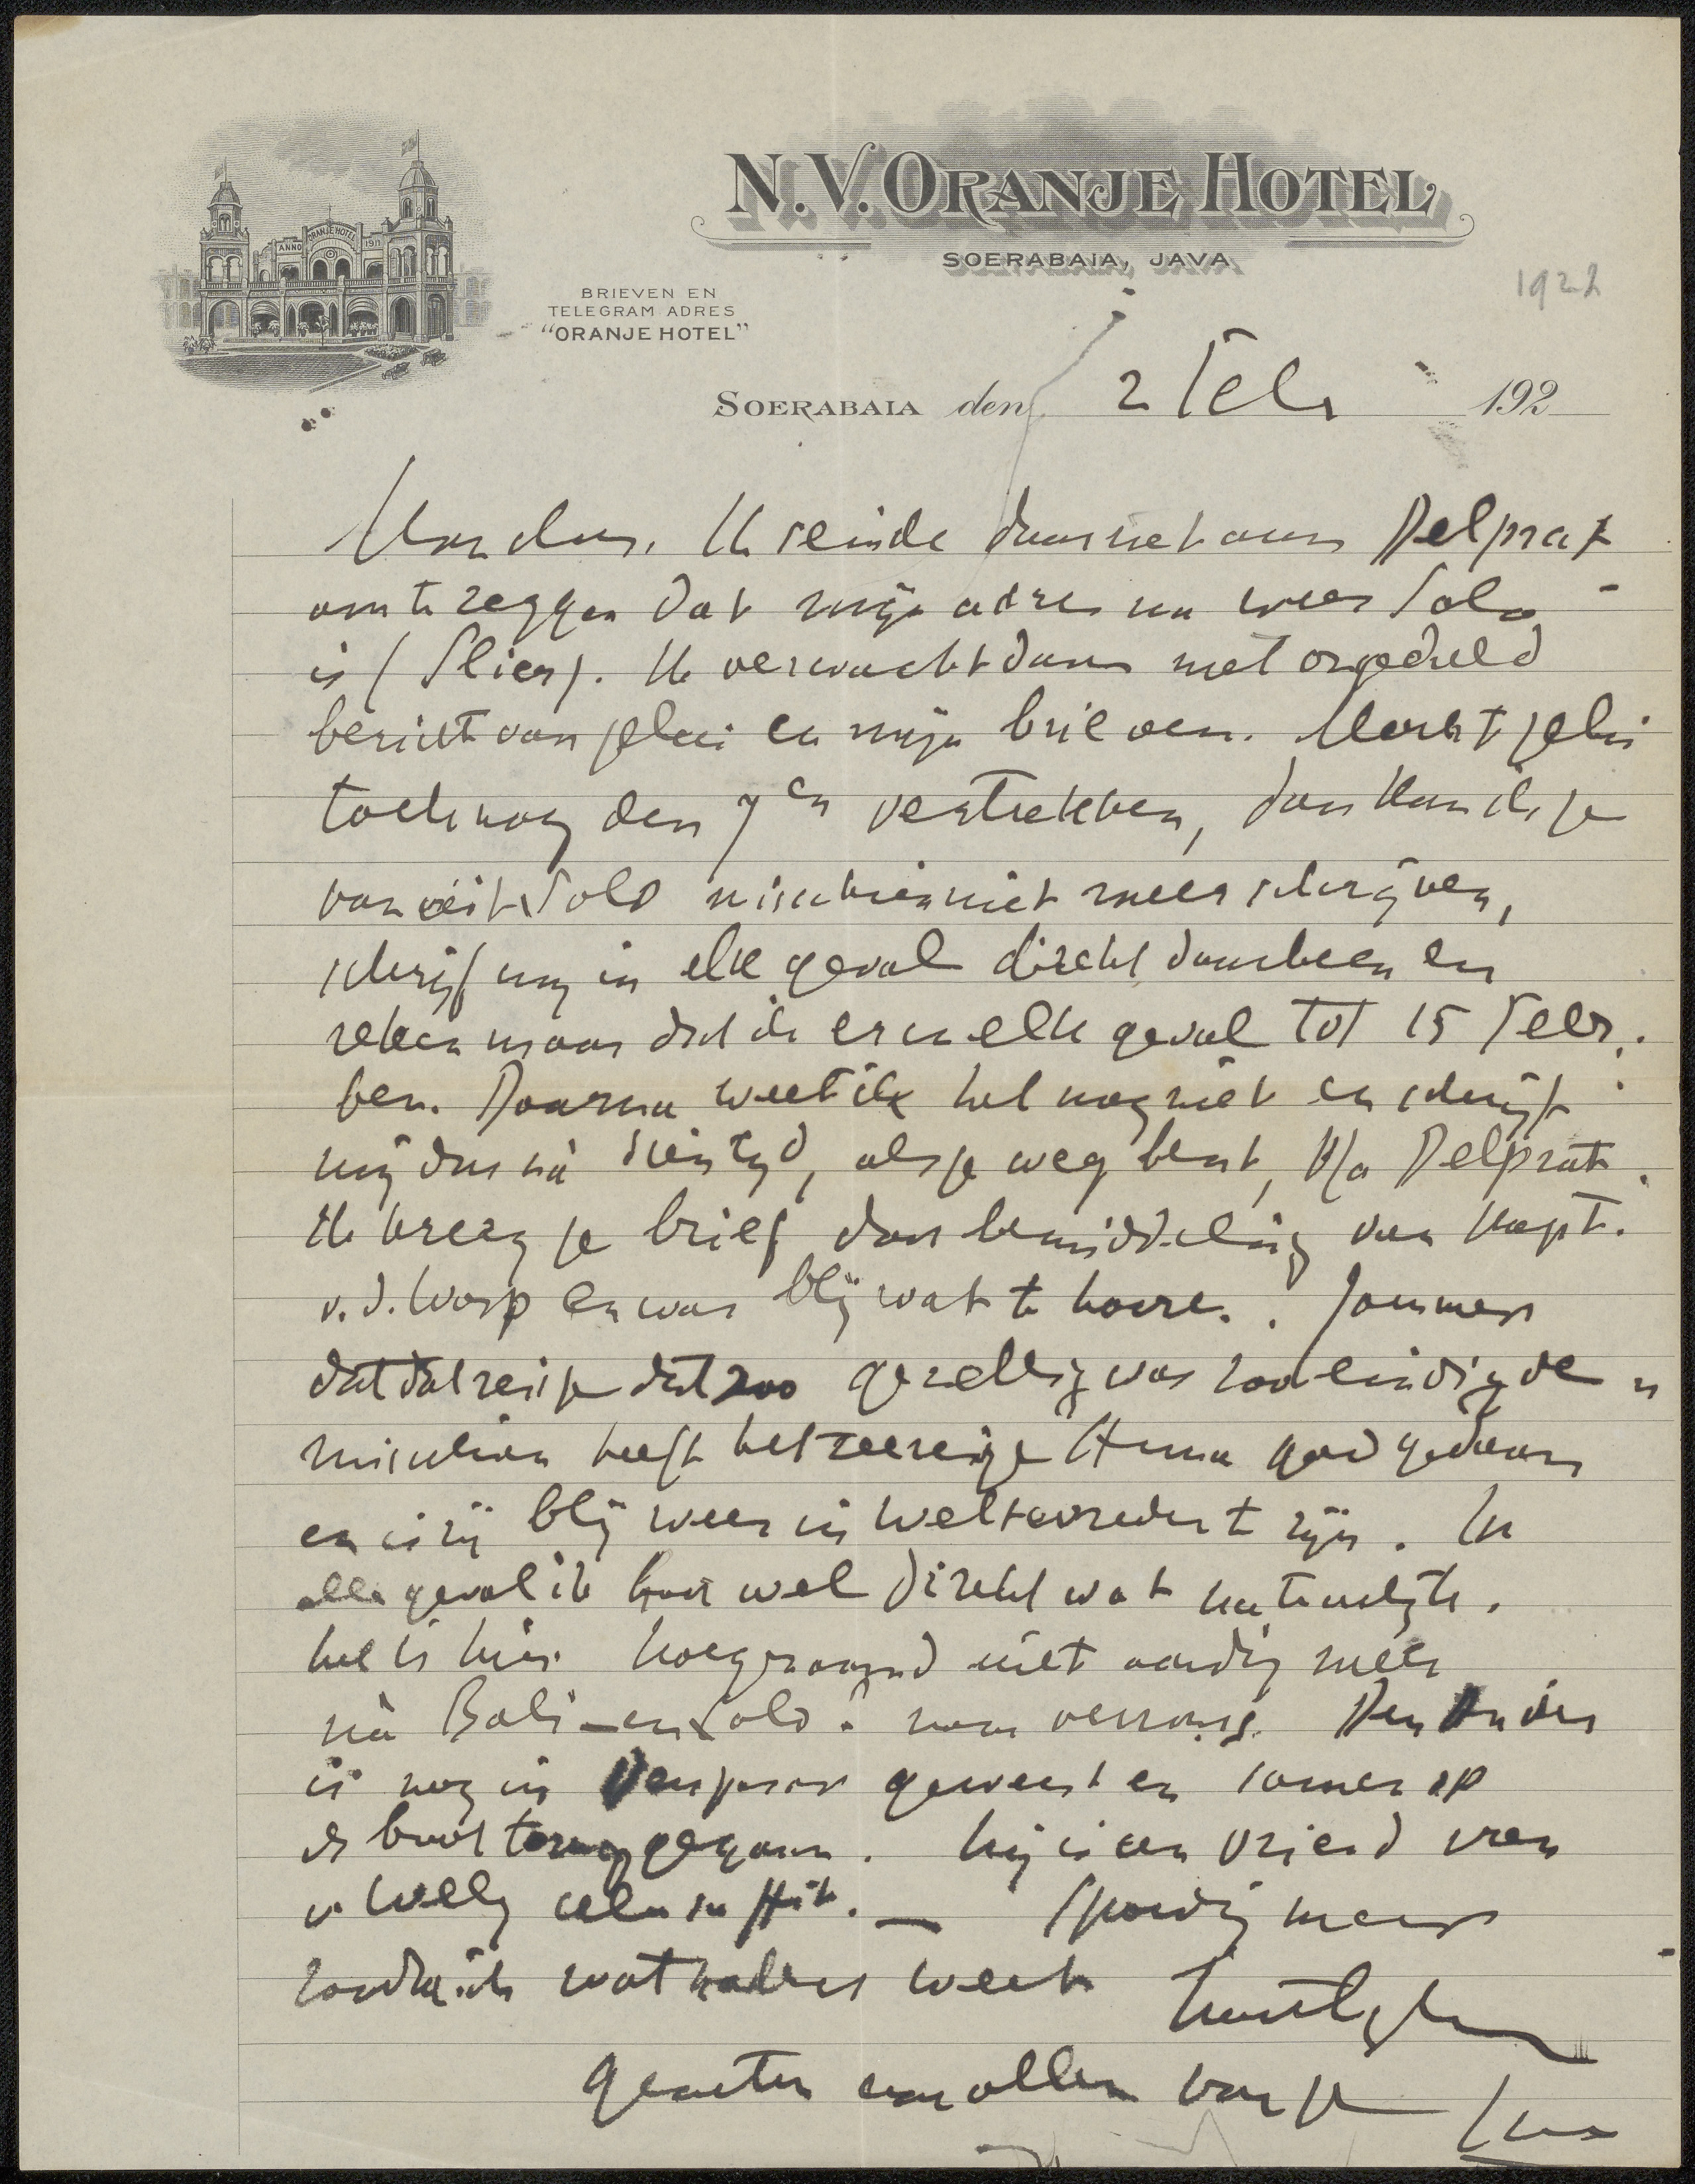 N.V. ORANJE HOTEL
SOERABAIA, JAVA
ANNO ORANJE HOTEL 1911
BRIEVEN EN
TELEGRAM ADRES
"ORANJE HOTEL"
1922
SOERABAIA den 2 Febr 192
Ik seinde daarnet aan Delprat
om te zeggen dat mijn adres nu weer Solo
is (Slier). Ik verwacht dan met ongeduld
bericht van jelui en mijn brieven. Mocht jelui
toch nog den 7en vertrekken, dan kan ik je
van uit Solo misschien niet meer schrijven,
schrijf mij in elk geval direkt daarheen en
reken maar dat ik er in elk geval tot 15 Febr.
ben. Daarna weet ik het nog niet en schrijf
mij dus ná dien tijd, als je weg bent, p/a Delprat.
Ik kreeg je brief door bemiddeling van Kapt.
v.d. Worp en was blij wat te hooren. Jammer
dat dat reisje dat zoo gezellig was zoo eindigde
misschien heeft het zeereisje Anna goed gedaan
en is zij blij weer in Weltevreden te zijn. In
elk geval ik hoor wel direkt wat
het is hier hoegenaamd niet aardig meer
ná Bali en Solo.
is nog in Denpasar geweest en samen op
de boot teruggegaan. Hij is een vriend van
v. Welly Spoedig meer
zoodra ik wat naders weet. Hartelijke
groeten aan allen van je